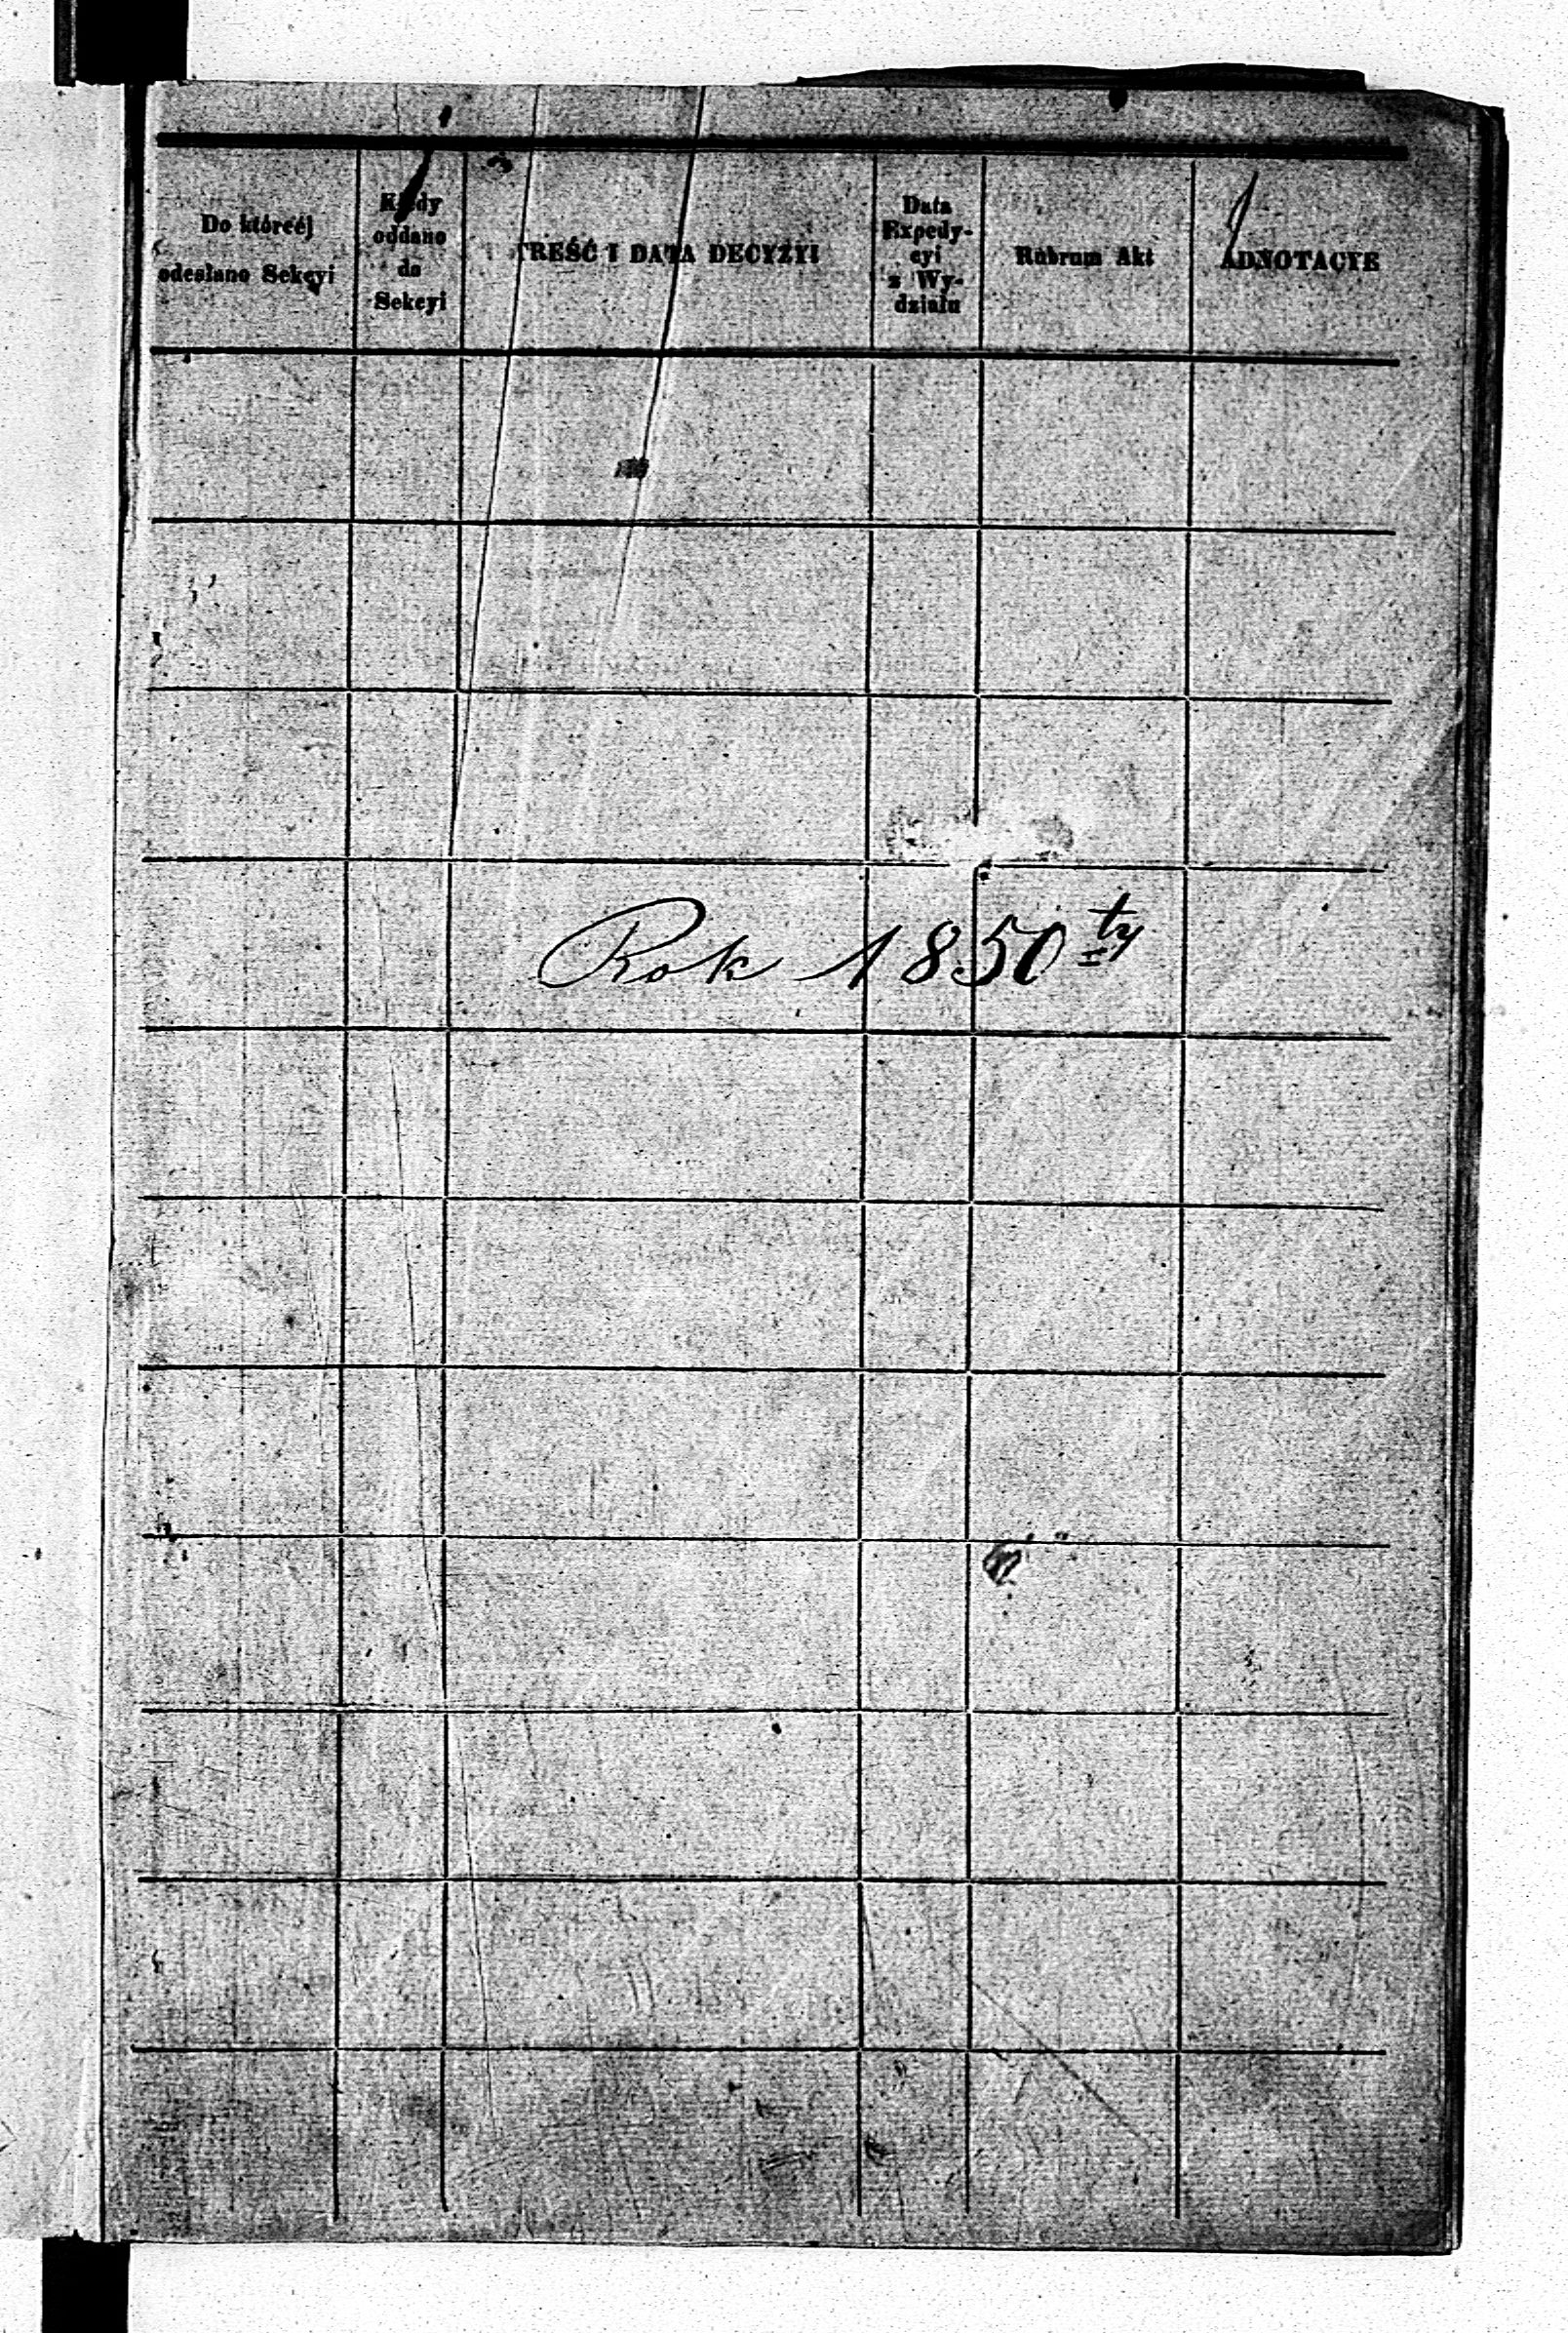 Do któreéj
odesłano Sekcyi
Kiedy
oddano
do
Sekcyi
TREŚĆ I DATA DECYZYI
Data
Expedy-
cyi
z Wy-
działu
Rubrum Akt
ADNOTACYE
Rok 1850ty